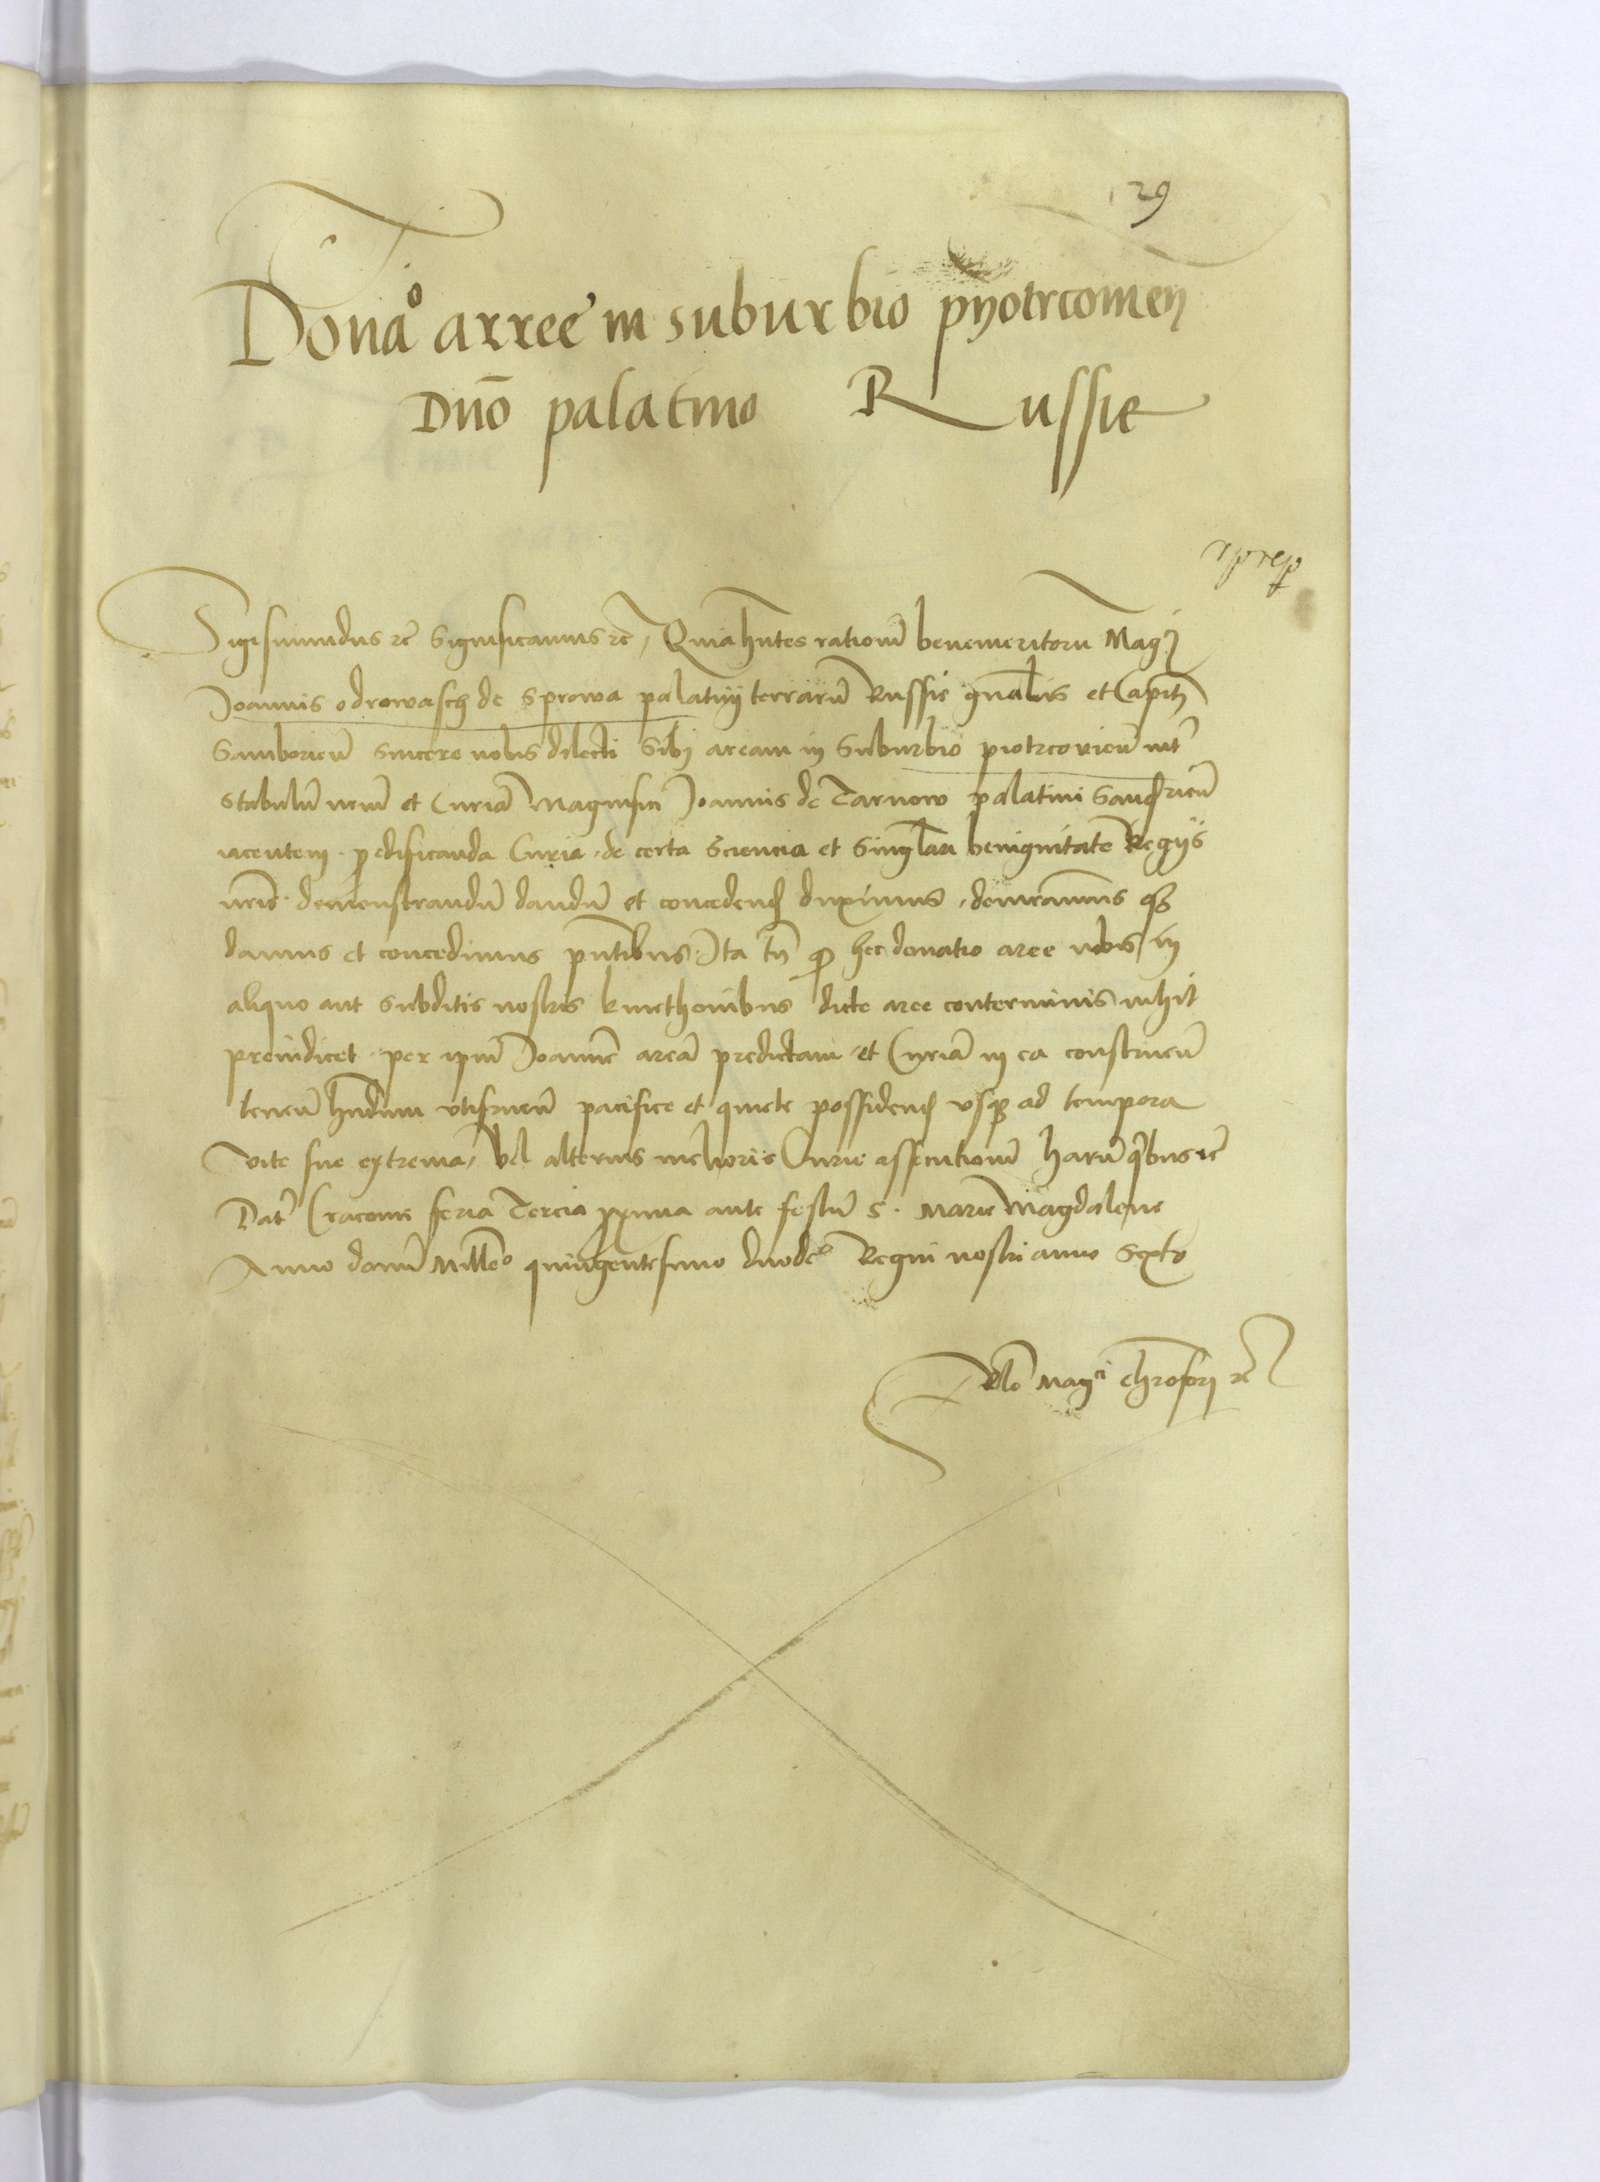 29
Donao arree in suburbio pyotrcouien
Dno palatino Russie
Sigismundus rc Significamus rc, Quia hntes rationem benemeritoru Magci
Joannis odrowasch de Sprowa palatini terraru Russie gnalis et Capitei
Samborien sincere nobis dilecti Sibi aream in Suburbio piotrcovien int
Stabulu nrum et Curia Magnifici Joannis de Tarnow palatini Sandrien
iacentem p edificanda Curia de certa Sciencia et Singlari benignitate Regijs
demonstrandu dandu et concedend duximus, demramus qz
damus et concedimus pntibus Ita tn quod hec donatio aree nobis in
aliquo aut Subditis nostris kmethonibus dicte aree conterminis nihil
preiudicet per ipm Joanne area predictam et Curia in ea construen
tenen hndam utifruen pacifice et quiete possidend usqz ad tempora
vite sue extrema, vel alterius melioris Curie assecutionem harum qbus rc
Dat Cracovie feria Tercia pxima ante festu S. Marie Magdalene
Anno domi Millo quingentesimo duodeo Regni nostri anno Sexto
Relo Magci chrofori rc